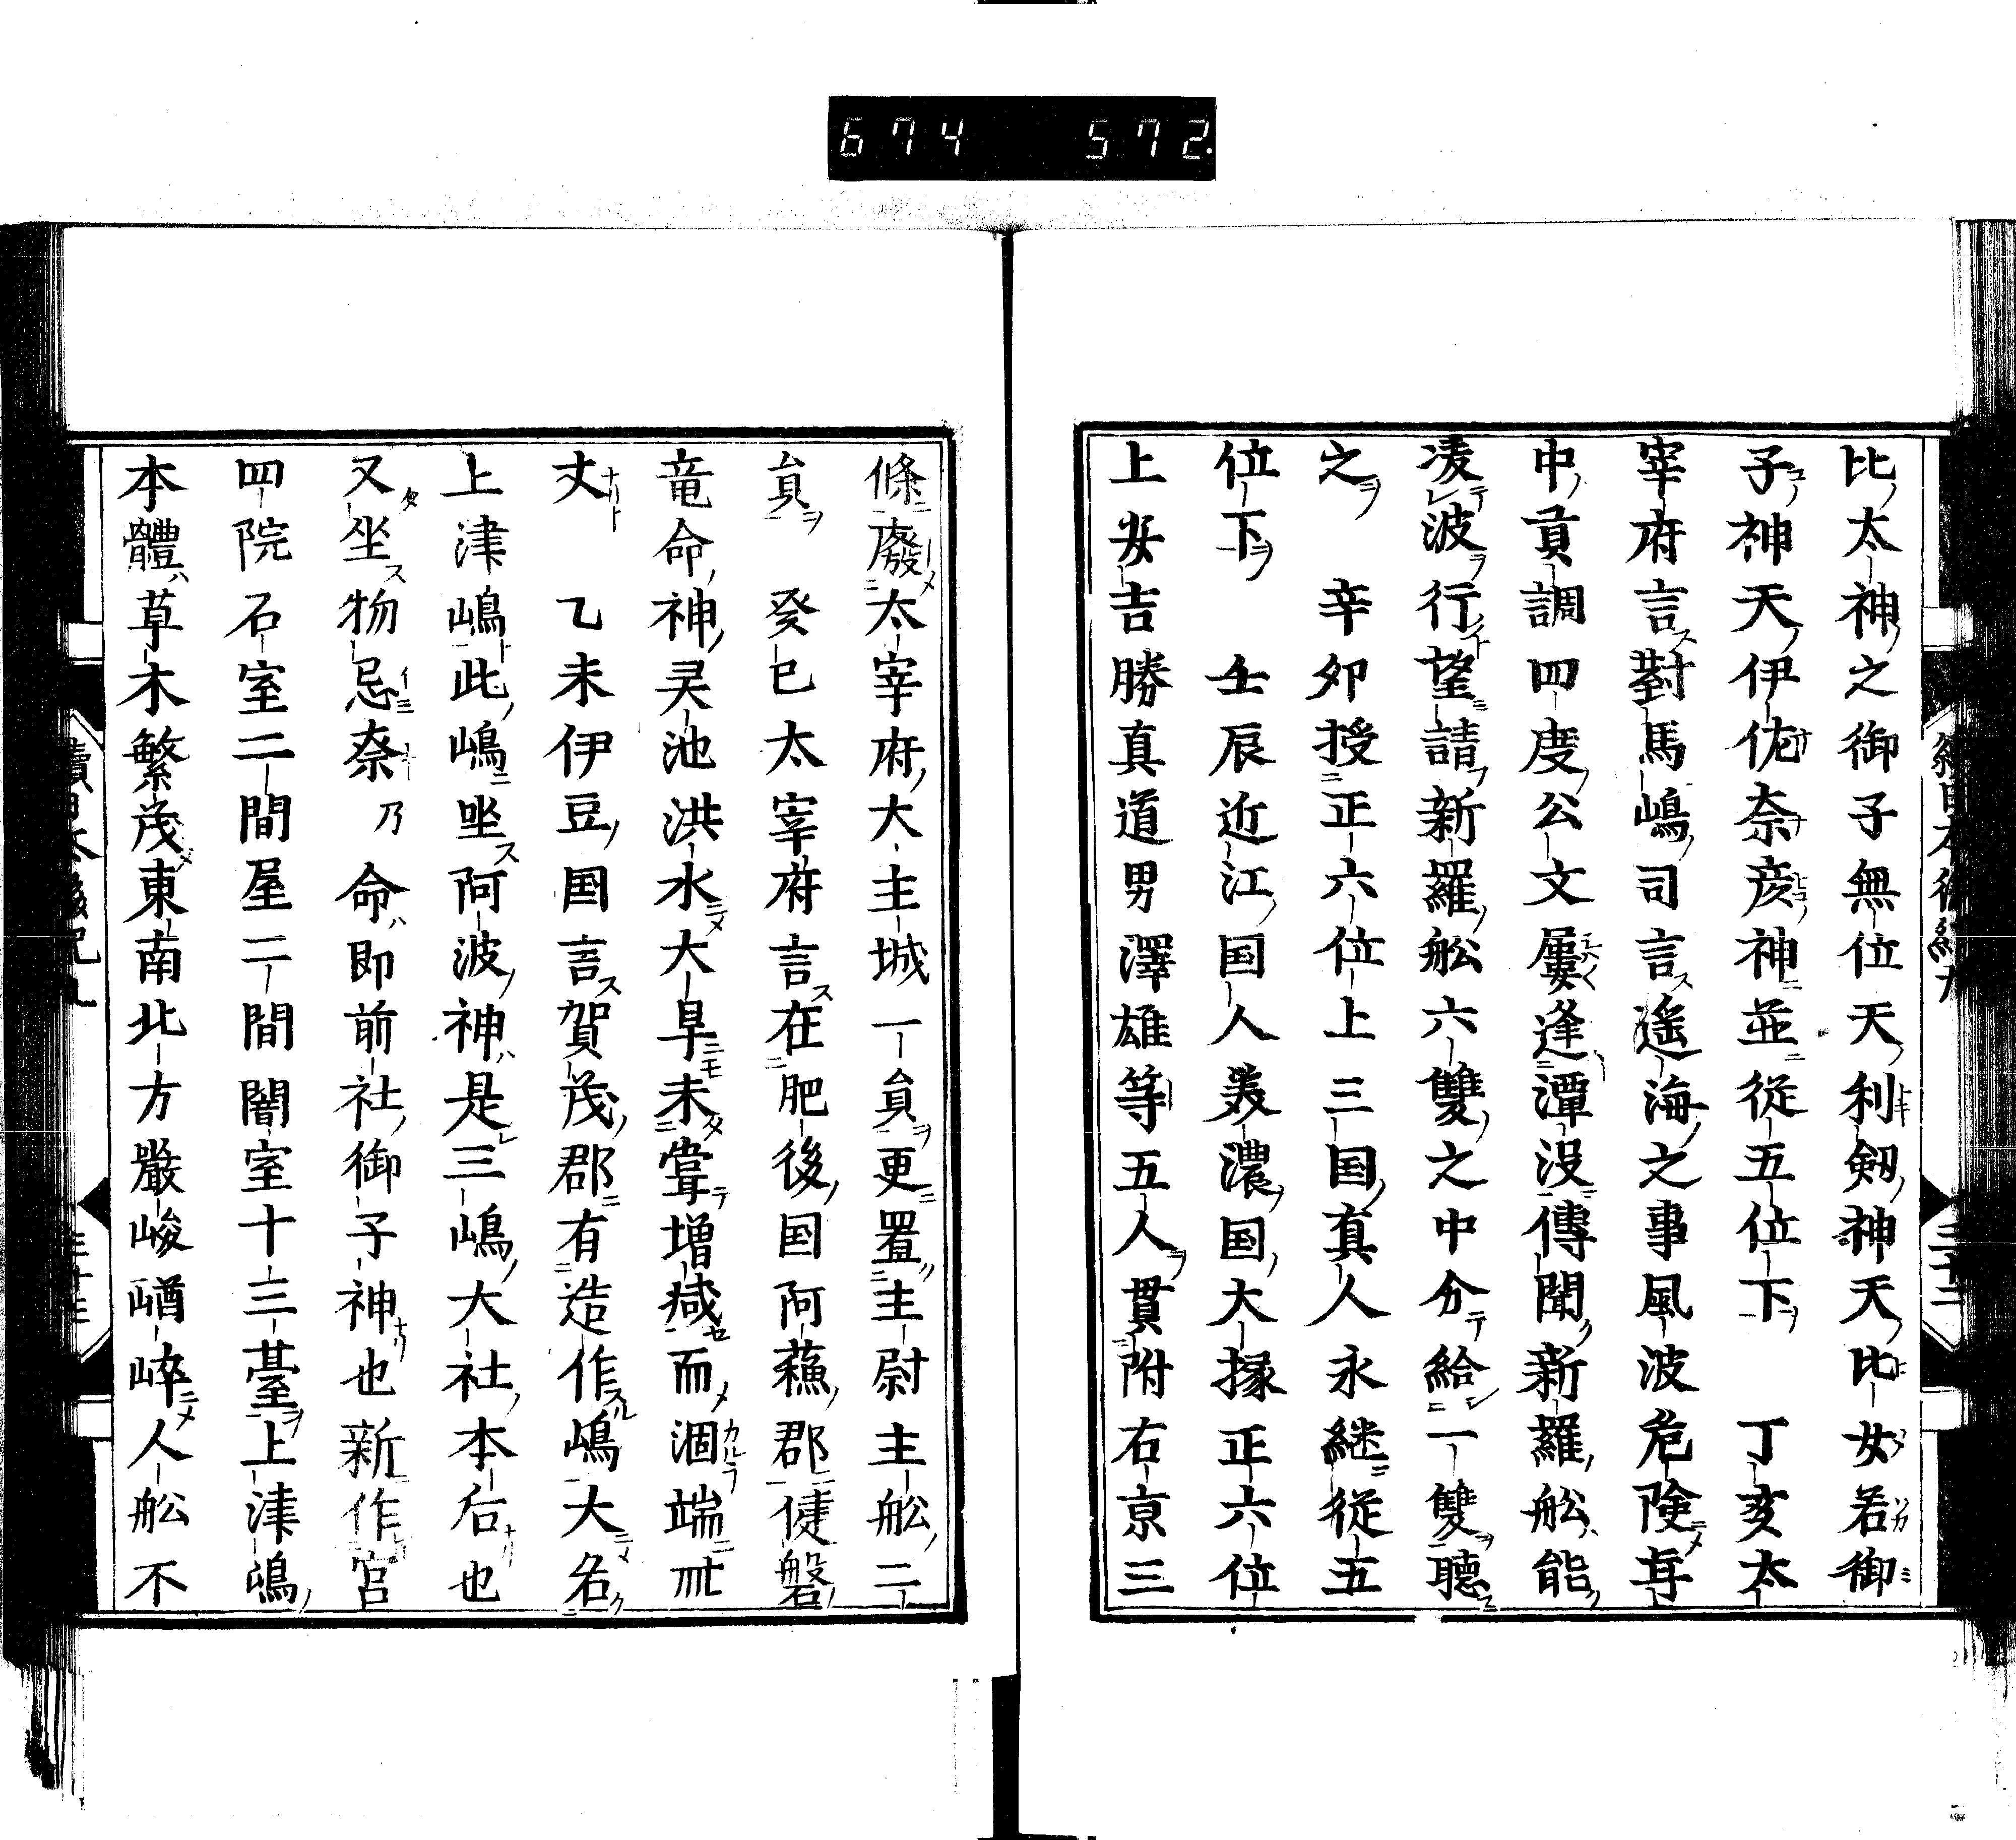 674 572.
比太神之御子無位天利剱神天比女若御
子神天伊佐奈彦神並從五位下 丁亥太
宰府言對馬嶋司言遥海之事風波危險年
中貢調四度公文屢逢漂没傳聞新羅舩能
凌波行望請新羅舩六雙之中分給一雙聽
之 辛卯授正六位上三国真人永継從五
位下 壬辰近江国人美濃国大掾正六位
上安吉勝真道男澤雄等五人貫附右京三
條廢太宰府大主城一負更置主尉主舩二
負 癸巳太宰府言在肥後国阿蘓郡健磐
竜命神灵池洪水大旱未嘗増減而涸端卌
丈 乙未伊豆国言賀茂郡有造作嶋大名
上津嶋此嶋坐阿波神是三嶋大社本后也
又坐物忌奈乃命即前社御子神也新作宮
四院石室二間屋二間闇室十三臺上津嶋
本體草木繁茂東南北方嚴峻崷崒人舩不